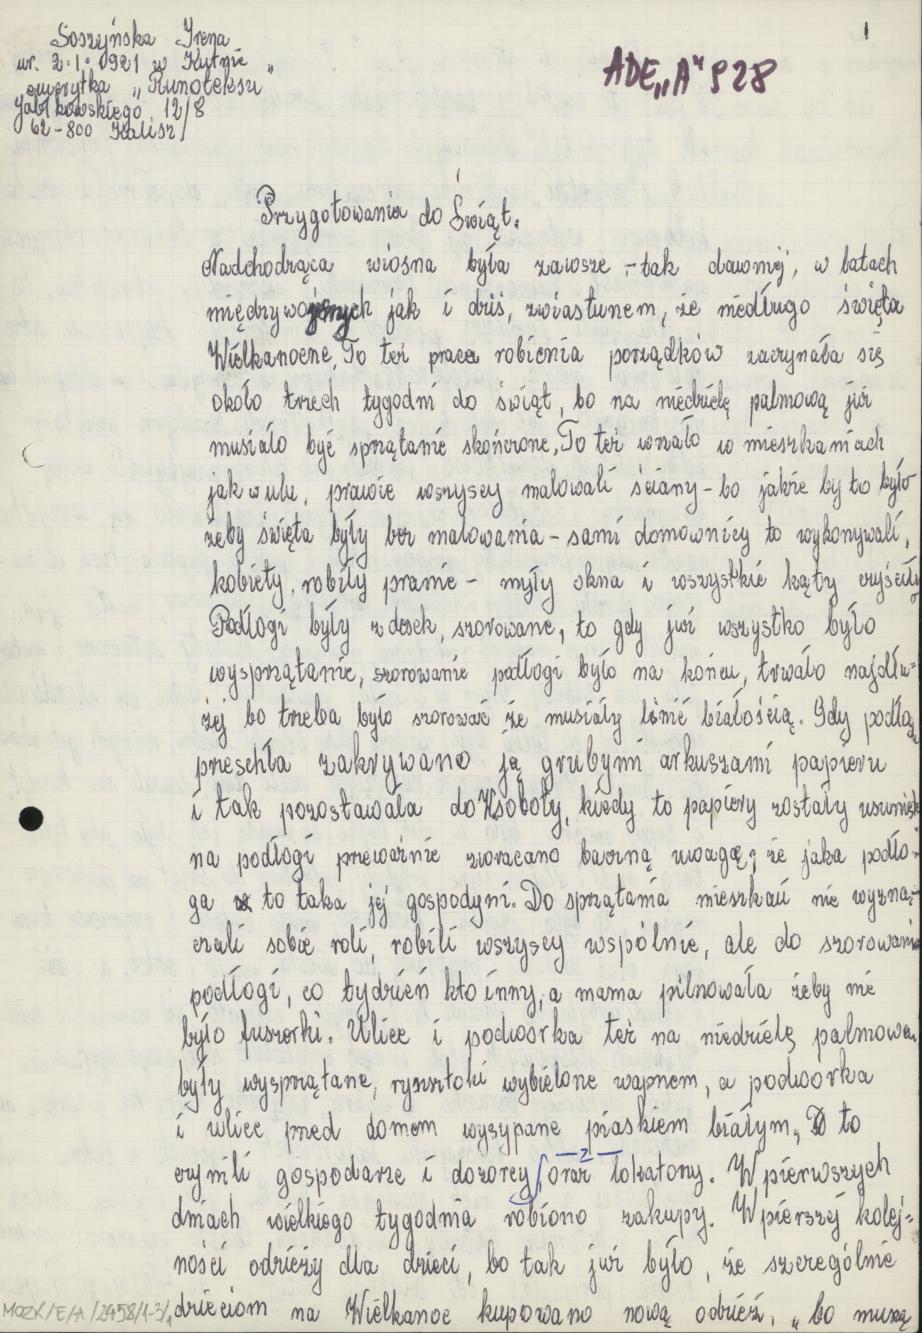 Soszyńska Irena
ur. 2.1.1921 w Kutnie
emerytka „Runoteksu"
Jabłkowskiego 12/8
62-800 Kalisz
1
ADE„A" 928
Przygotowania do Świąt.
Nadchodząca wiosna była zawsze, – tak dawniej, w latach
międzywojennych jak i dziś, zwiastunem, że niedługo święta
Wielkanocne. To też praca robienia porządków zaczynała się
około trzech tygodni do świąt, bo na niedzielę palmową już
musiało być sprzątanie skończone. To też wrzało w mieszkaniach
jak w ulu, prawie wszyscy malowali ściany – bo jakże by to było
żeby święta były bez malowania – sami domownicy to wykonywali,
kobiety, robiły pranie – myły okna i wszystkie kąty czyściły
Podłogi były z desek, szorowane, to gdy już wszystko było
wysprzątanie, szorowanie podłogi było na końcu, trwało najdłu=
żej bo trzeba było szorować że musiały lśnić białością. Gdy podłoga
przeschła zakrywano ją grubym arkuszami papieru
i tak pozostawała do W soboty, kiedy to papiery zostały usunięte
na podłogi przeważnie zwracano baczną uwagę, że jaka podło-
ga to taka jej gospodyni. Do sprzątania mieszkań nie wyzna-
czali sobie roli, robili wszyscy wspólnie, ale do szorowania
podłogi, co tydzień kto inny, a mama pilnowała żeby nie
było fuszerki. Ulice i podwórka też na niedzielę palmową
były wysprzątane, rynsztoki wybielone wapnem, a podwórka
i ulice przed domem wysypane piaskiem białym, to
czynili gospodarze i dozorcy oraz lokatorzy. W pierwszych
– 2 –
dniach wielkiego tygodnia robiono zakupy. W pierszej kolej=
ności odzieży dla dzieci, bo tak już było, że szczególnie
dzieciom na Wielkanoc kupowano nową odzież, „bo muszą
MOZK/E/A/2458/1-3/1